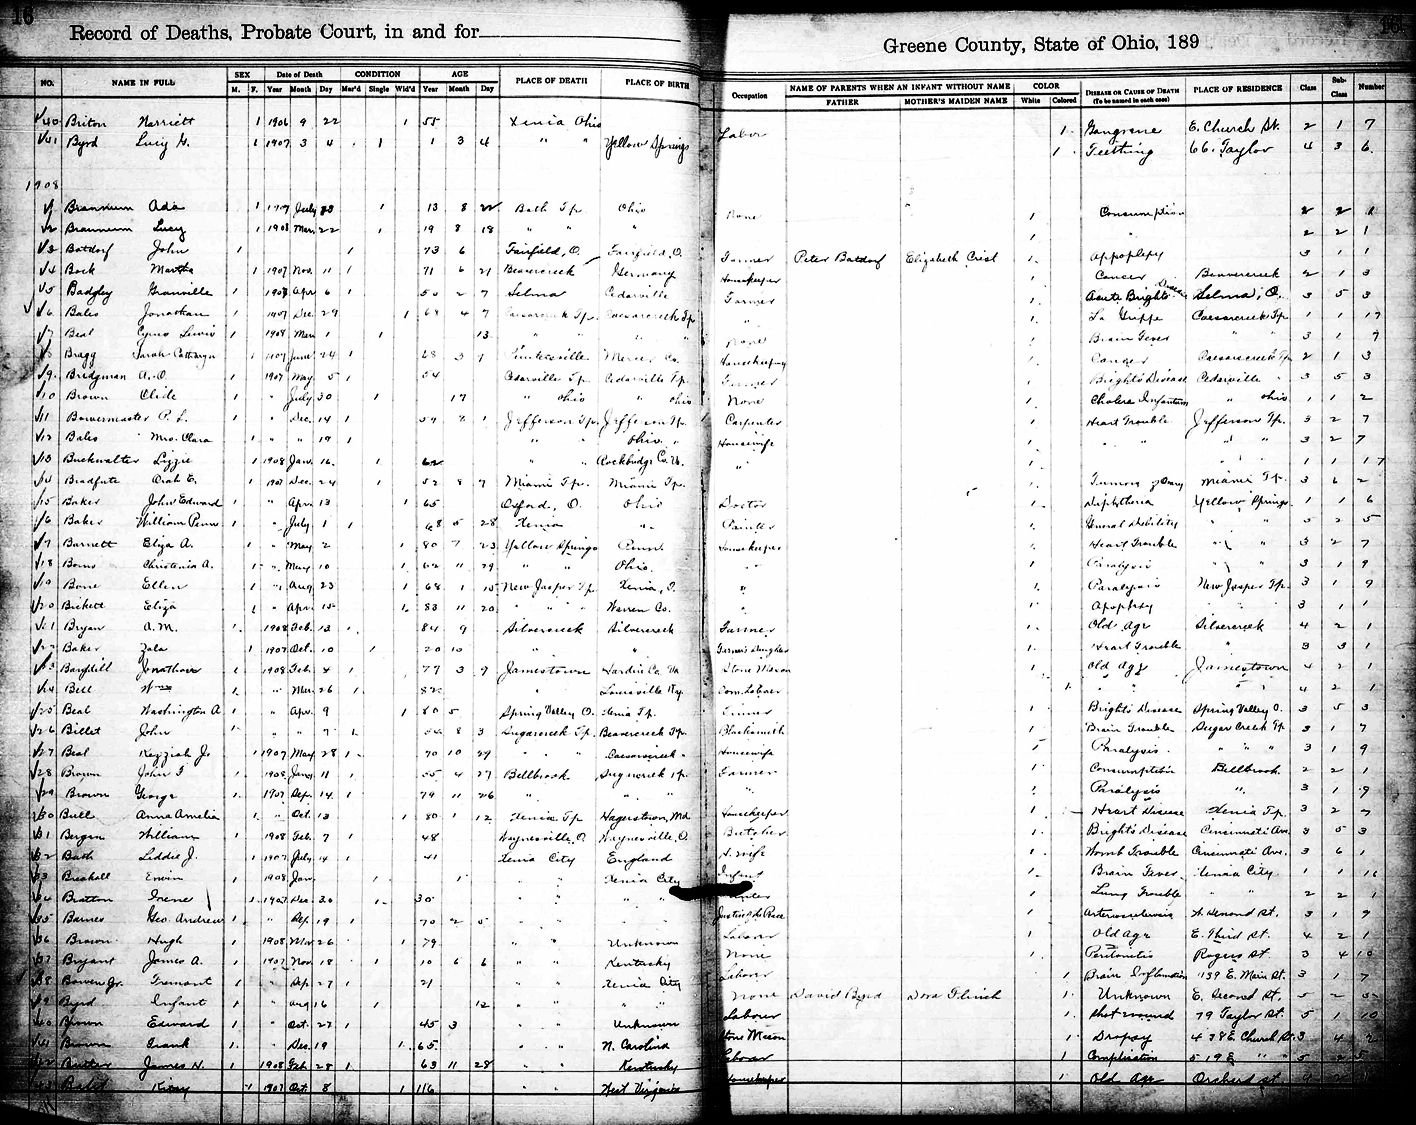 16
Record of Deaths, Probate Court, in and for
Greene County, State of Ohio, 189
NO. NAME IN FULL SEX M. F. Date of Death Year Month Day CONDITION Mar'd Single Wid'd AGE Year Month Day PLACE OF DEATH PLACE OF BIRTH Occupation NAME OF PARENTS WHEN AN INFANT WITHOUT NAME FATHER MOTHER'S MAIDEN NAME COLOR White Colored DISEASE OR CAUSE OF DEATH (To be named in each case) PLACE OF RESIDENCE Class Sub-Class Number
40 Briton Harriett 1 1906 9 22 1 55 Xenia Ohio Labor 1 Gangrene E. Church St. 2 1 7
41 Byrd Lucy G. 1 1907 3 4 1 1 3 4 " " Yellow Springs 1 Teething 66. Taylor 4 3 6
1908
1 Brannum Ada 1 1907 July 23 1 13 8 22 Bath Tp. Ohio None 1 Consumption 2 2 1
2 Brannum Lucy 1 1908 Mar. 22 19 8 18 " " " 1 " 2 2 1
3 Batdorf John 1 1 73 6 Fairfield, O. Fairfield, O. Farmer Peter Batdorf Elizabeth Crist 1 Appoplexy 3 1 1
4 Bock Martha 1 1907 Nov. 11 1 71 6 21 Beavercreek Germany Housekeeper 1 Cancer Beavercreek 2 1 3
5 Badgley Granville 1 1908 Apr 6 1 50 2 7 Selma Cedarville Farmer 1 Acute Brights Disease Selma, O. 3 5 3
6 Bales Jonathan 1 1907 Dec. 29 1 68 4 7 Caesarcreek Tp. Caesarcreek Tp. " 1 La Grippe Caesarcreek Tp. 1 1 17
7 Beal Cyrus Lewis 1 1908 Mar. 1 1 13 " " " None 1 Brain Fever 3 1 9
8 Bragg Sarah Catharyn 1 1907 June 24 1 68 3 9 Paintersville Mercer Co. Housekeeping 1 Cancer Caesarscreek Tp. 2 1 3
9 Bridgman A. O. 1 1907 May 5 1 54 Cedarville Tp. Cedarville Tp. Farmer 1 Bright's Disease Cedarville " 3 5 3
10 Brown Clide 1 " July 30 1 17 " Ohio " Ohio None 1 Cholera Infantum " Ohio 1 1 2
11 Bowermaster P. L. 1 " Dec. 14 1 Jefferson Tp. Jefferson Tp. Carpenter 1 Heart Trouble Jefferson Tp. 3 2 7
12 Bales Mrs. Clara 1 " " 19 1 " " Ohio. " Housewife 1 " " " " 3 2 7
13 Buckwalter Lizzie 1 1908 Jan. 16 1 62 " " Rockbridge Co. Va. " 1 " " 1 1 17
14 Bradfute Orah E. 1 1907 Dec. 24 1 52 8 9 Miami Tp. Miami Tp. 1 Tumors Ovary Miami Tp. 3 6 2
15 Baker John Edward 1 " Apr. 13 1 65 Oxford, O. Ohio Doctor 1 Diphtheria Yellow Springs 1 1 6
16 Baker William Penn 1 " July 1 1 68 5 28 Xenia " Painter 1 General Debility " " 5 2 5
17 Barnett Eliza A. 1 " May 2 1 80 7 23 Yellow Springs Penn. Housekeeper 1 Heart Trouble " " 3 2 7
18 Christenia A. 1 " May 10 1 62 11 29 " " Ohio. " 1 Paralysis " " 3 1 9
19 Bone Ellen 1 " Aug 23 1 68 1 15 New Jasper Tp. Xenia, O. " 1 Paralysis New Jasper Tp. 3 1 9
20 Bickett Eliza 1 " Apr. 15 1 83 11 20 " " " Warren Co. " 1 Apoplexy " " 3 1 1
21 Bryan A. M. 1 1908 Feb. 13 1 84 9 Silvercreek Silvercreek Farmer 1 Old Age Silvercreek 4 2 1
22 Baker Zola 1 1907 Oct. 10 1 20 10 " " Farmer's Daughter 1 Heart Trouble " 3 3 1
23 Jonathan 1 1908 Feb. 4 1 77 3 9 Jamestown Hardin Co. Va Stone Mason 1 Old Age Jamestown 4 2 1
24 Bell Wm 1 " Mar. 26 1 82 " Louisville Ky. Com. Laborer 1 " " " 4 2 1
25 Beal Washington A 1 " Apr. 9 1 80 5 Spring Valley O. Xenia Tp. Farmer 1 Bright's Disease Spring Valley O. 3 5 3
26 Billet John 1 " " 7 1 54 8 3 Sugarcreek Tp. Beavercreek Tp. Blacksmith 1 Brain Trouble Sugar Creek Tp 3 1 7
27 Beal Kezziah Jr 1 1907 May 28 1 70 10 29 " " " Caesarscreek " Housewife 1 Paralysis " " " 3 1 9
28 Brown John F 1 1908 Jany 11 1 55 4 27 Bellbrook Sugarcreek Tp. Farmer 1 Consumption Bellbrook 2 2 1
29 Brown George 1 1907 Sep. 14 1 79 11 26 " " " " 1 Paralysis " 3 1 9
30 Bull Anna Amelia 1 " Oct. 13 1 80 1 12 Xenia Tp Hagerstown, Md Housekeeper 1 Heart Disease Xenia Tp. 3 2 7
31 Bergen William 1 1908 Feb. 7 1 48 Waynesville, O. Waynesville, O. Butcher 1 Bright's Disease Cincinnati Ave. 3 5 3
32 Bath Liddie J. 1 1907 July 14 1 41 Xenia City England H. wife 1 Womb Trouble Cincinnati Ave. 3 6 1
33 Erwin 1 1908 Jan. 1 1 " " Xenia City Infant 1 Brain Fever Xenia City 1 1 16
34 Bratton Irene 1 1907 Dec. 30 1 30 " " " " 1 Lung Trouble " " 2 2 1
35 Barnes Geo. Andrew 1 " Sep. 19 1 70 2 5 " " " Justice of the Peace 1 Arteriosclerosis W. Second St. 3 1 9
36 Brown Hugh 1 1908 Mar 26 1 79 " " Unknown Laborer 1 Old Age E. Third St. 4 2 1
37 Bryant James A. 1 1907 Nov. 18 1 10 6 6 " " Kentucky None 1 Peritonitis Rogers St. 3 4 10
38 Bowen Jr. Fremont 1 " Sep. 27 1 21 " " Xenia City Laborer 1 Brain Inflamation 139 E. Main St. 3 1 7
39 Byrd Infant 1 " Aug 16 1 12 " " " " None David Byrd Dora Flinch 1 Unknown E. Second St. 5 2 5
40 Brown Edward 1 " Oct. 27 1 45 3 " " Unknown Laborer 1 Shot wound 79 Taylor St. 5 1 10
41 Brown Frank 1 " Dec. 19 1 65 " " N. Carolina Stone Mason 1 Dropsy 438 E. Church St. 3 4 2
42 Butler James H. 1 1908 Feb 28 1 63 11 28 " " Kentucky Laborer 1 Complication 519 E " " 5 2 5
43 1 1907 Oct. 8 1 116 " " West Virginia Housekeeper 1 Old Age Orchard St